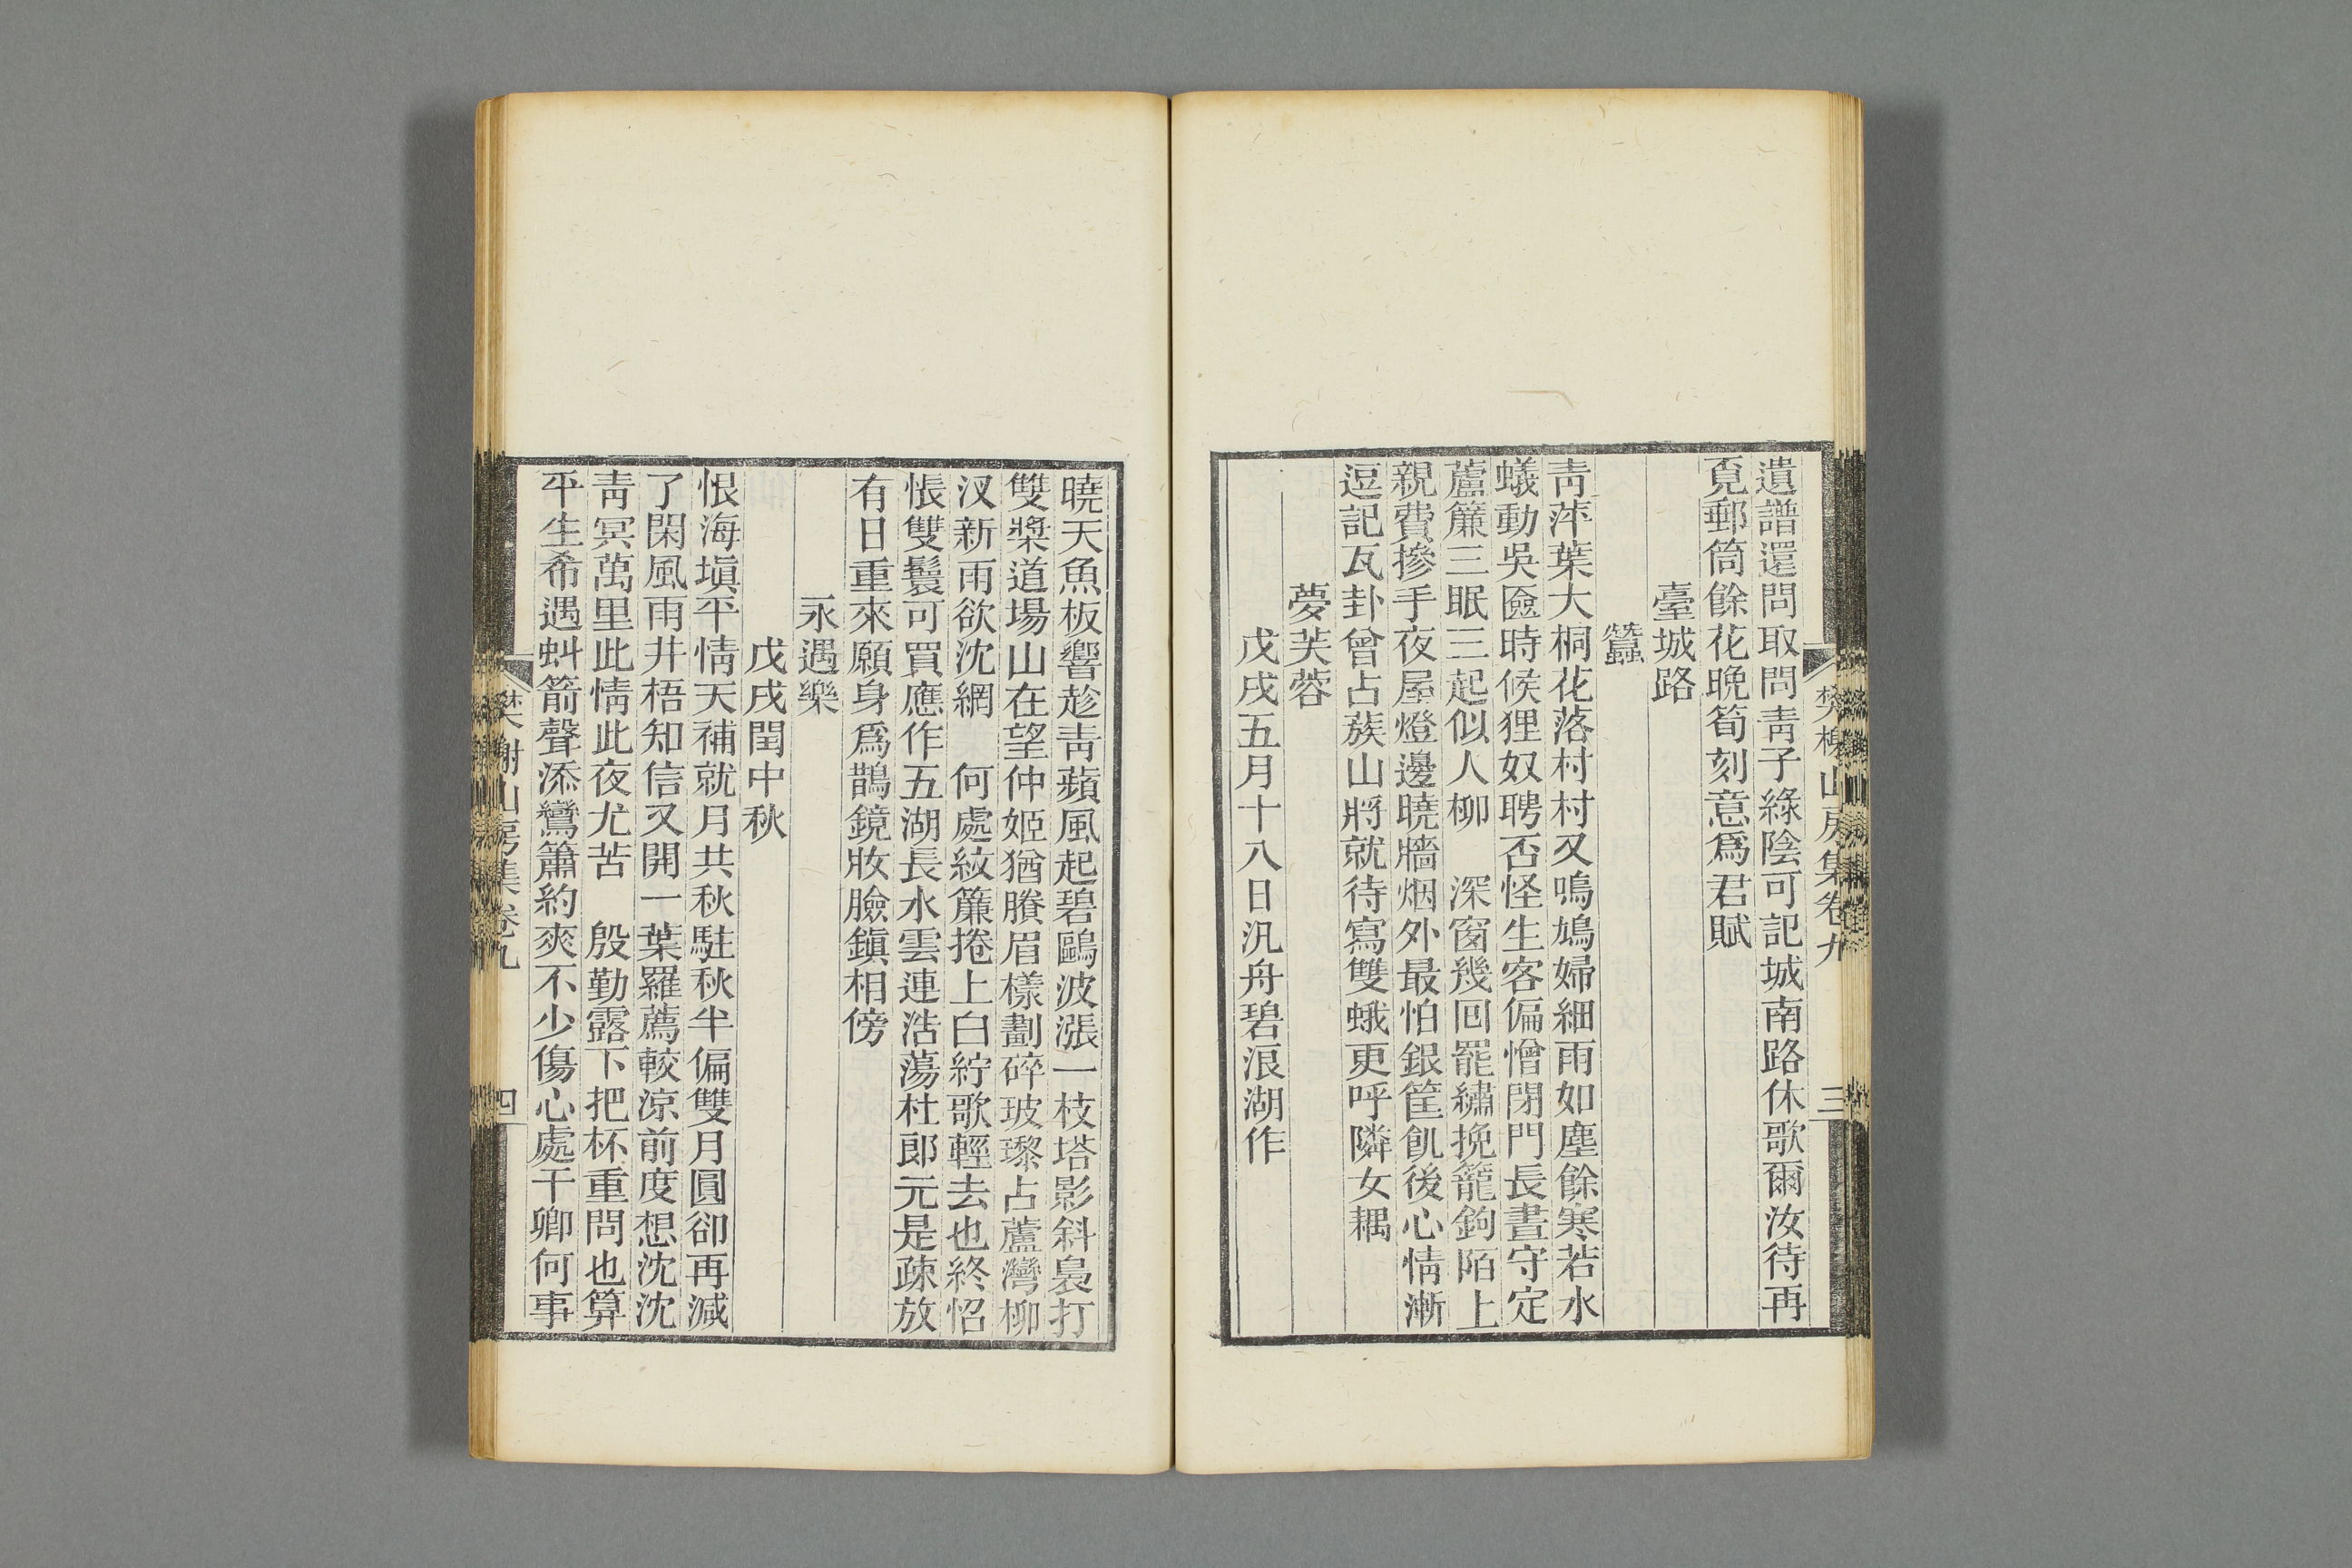 遺譜還問取問靑子綠陰可記城南路休歌爾汝待再
覔郵筒餘花晚筍刻意爲君賦
臺城路
蠶
靑萍葉大桐花落村村又鳴鳩婦細雨如塵餘寒若水
蟻動吳匳時候狸奴聘否怪生客偏憎閉門長晝守定
蘆簾三眠三起似人柳　深窗幾回罷繡挽籠鉤陌上
親費摻手夜屋燈邊曉牆烟外最怕銀筐飢後心情漸
逗記瓦卦曾占蔟山將就待寫雙蛾更呼隣女耦
夢芙蓉
戊戌五月十八日汎舟碧浪湖作
曉天魚板響趁靑蘋風起碧鷗波漲一枝塔影斜裊打
雙槳道場山在望仲姬猶賸眉樣劃碎玻瓈占蘆灣柳
汊新雨欲沈網　何處紋簾捲上白紵歌輕去也終怊
悵雙鬟可買應作五湖長水雲連浩蕩杜郎元是疎放
有日重來願身爲鵲鏡妝臉鎭相傍
永遇樂
戊戌閏中秋
恨海塡平情天補就月共秋駐秋半偏雙月圓卻再減
了閑風雨井梧知信又開一葉羅薦較涼前度想沈沈
靑冥萬里此情此夜尤苦　殷勤露下把杯重問也算
平生希遇虯箭聲添鸞簫約爽不少傷心處干卿何事
樊榭山房集卷九
三
樊榭山房集卷九
四